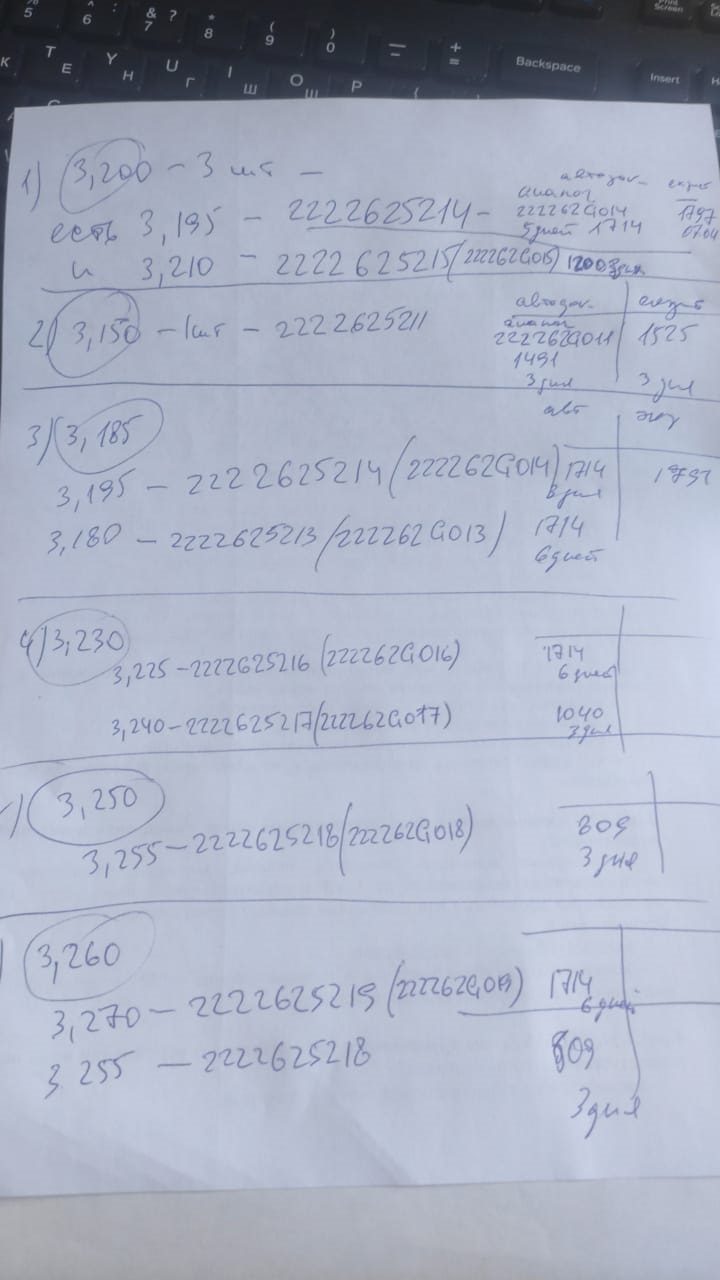 1) 3,200 - 3 шт -
есть 3,195 - 2222625214 -
аналог
222262G014
5 дней 1714
1797
и 3,210 - 2222625215 (222262G015) 1200 3 дня
2) 3,150 - 1 шт - 2222625211
автодок-
аналог
222262G011
1491
3 дня
1525
3 дня
3) 3,185
авт
3,195 - 2222625214 (222262G014) 1714
3 дня
3,180 - 2222625213 (222262G013) 1714
6 дней
4) 3,230
3,225 - 2222625216 (222262G016) 1714
6 дней
3,240 - 2222625217 (222262G017) 1040
3 дня
) 3,250
3,255 - 2222625218 (222262G018) 809
3 дня
) 3,260
3,270 - 2222625219 (222262G019) 1714
6 дней
3 255 - 2222625218 809
3 дня
% 5
^ 6
& 7 ?
* 8
( 9
) 0
— =
+ =
Backspace
Print Screen
Insert
К
T Е
Y Н
U Г
I Ш
O Щ
P